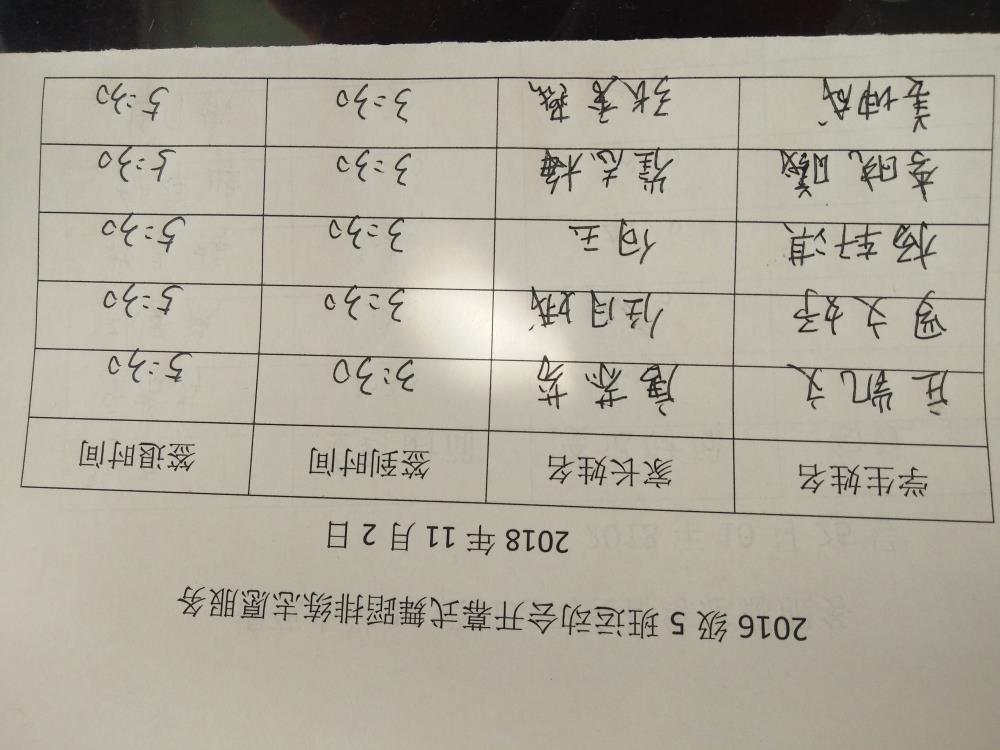 2016 级 5 班运动会开幕式舞蹈排练志愿服务
2018 年 11 月 2 日
学生姓名 家长姓名 签到时间 签退时间
庄凯文 唐 芳 3:30 5:30
文好 任月娥 3:30 5:30
杨轩淇 何玉 3:30 5:30
李晓曦 崔志梅 3:30 5:30
姜坤成 张秀燕 3:30 5:30